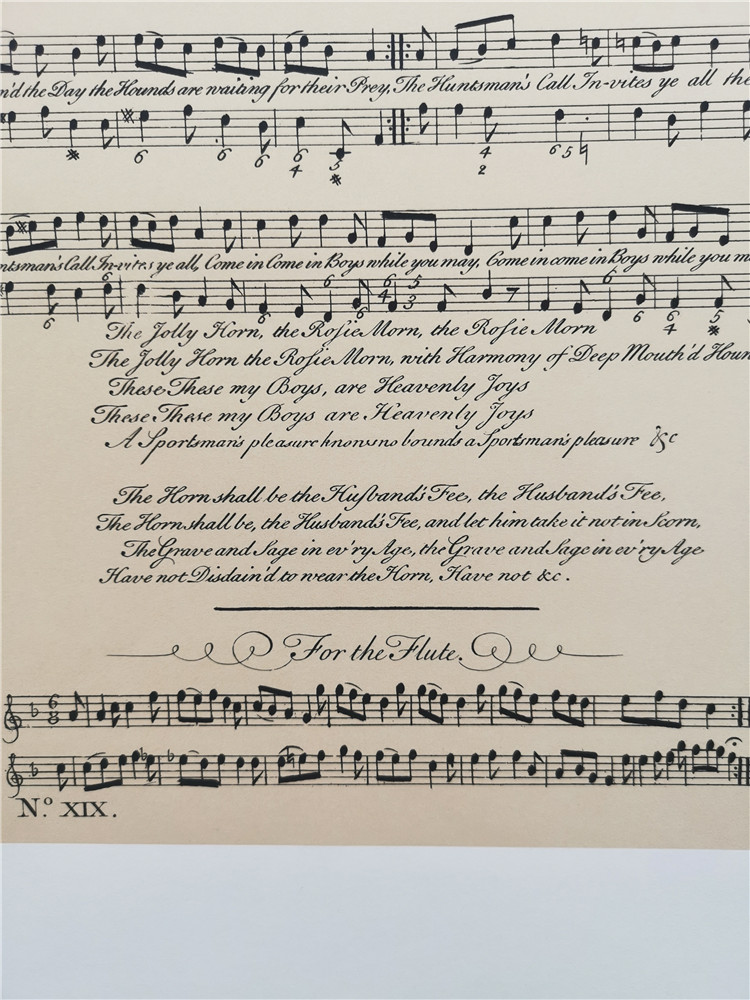 n'd the Day the Hounds are waiting for their Prey, The Huntsman's Call In-vites ye all the
6 6 6 6 4 5 4 2 6 5
ntsman's Call In-vites ye all, Come in Come in Boys while you may, Come in come in Boys while you m
6 6 6 6 6 4 5 3 6 6 6 4 5
The Jolly Horn, the Rosie Morn, the Rosie Morn
The Jolly Horn the Rosie Morn, with Harmony of Deep Mouth'd Houn
These These my Boys, are Heavenly Joys
These These my Boys are Heavenly Joys
A Sportsman's pleasure knows no bounds a Sportsman's pleasure &c
The Horn shall be the Husband's Fee, the Husband's Fee,
The Horn shall be, the Husband's Fee, and let him take it not in Scorn,
The Grave and Sage in ev'ry Age, the Grave and Sage in ev'ry Age
Have not Disdain'd to wear the Horn, Have not &c.
For the Flute.
6 8
N.º XIX.